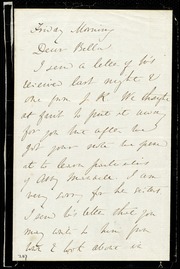 Friday Morning
Dear Bella
I send a letter of his
received last night &
one from J. K. We thought
at first to put it away
for you but after we
got your note we open
it to learn particulars
of Assy Miracle I am
very sorry for he writes
I send his letter that you
may write to him from
that & look above it